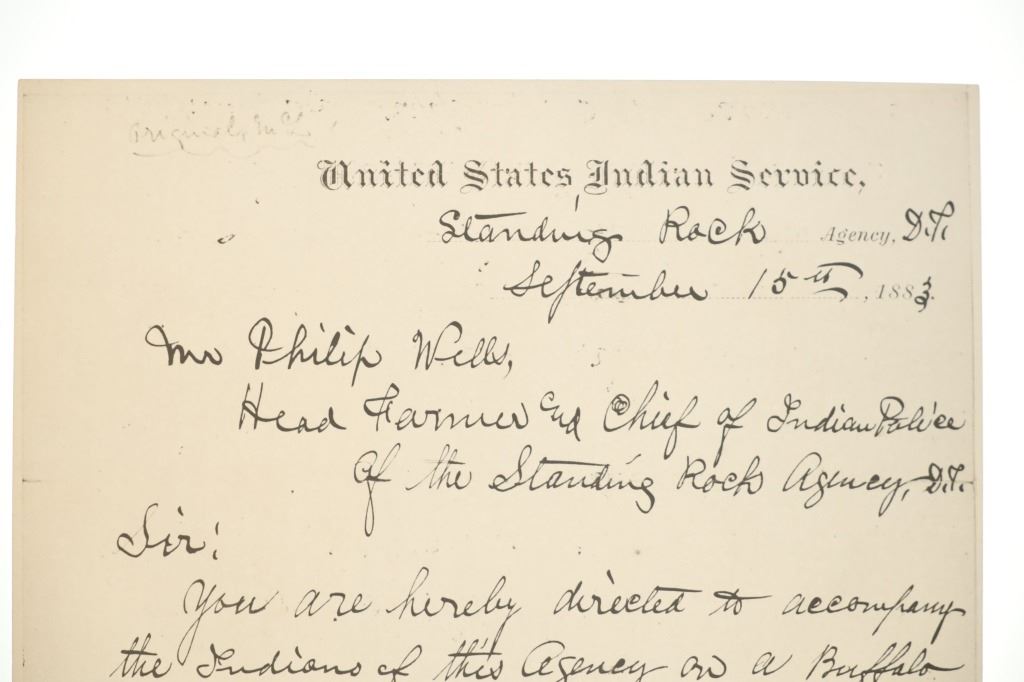 United States Indian Service,
Standing Rock Agency, D.T.
September 15th, 1883.
Mr Philip Wells,
Head Farmer and Chief of Indian Police
of the Standing Rock Agency, D.T.
Sir:
You are hereby directed to accompany
the Indians of this Agency on a Buffalo